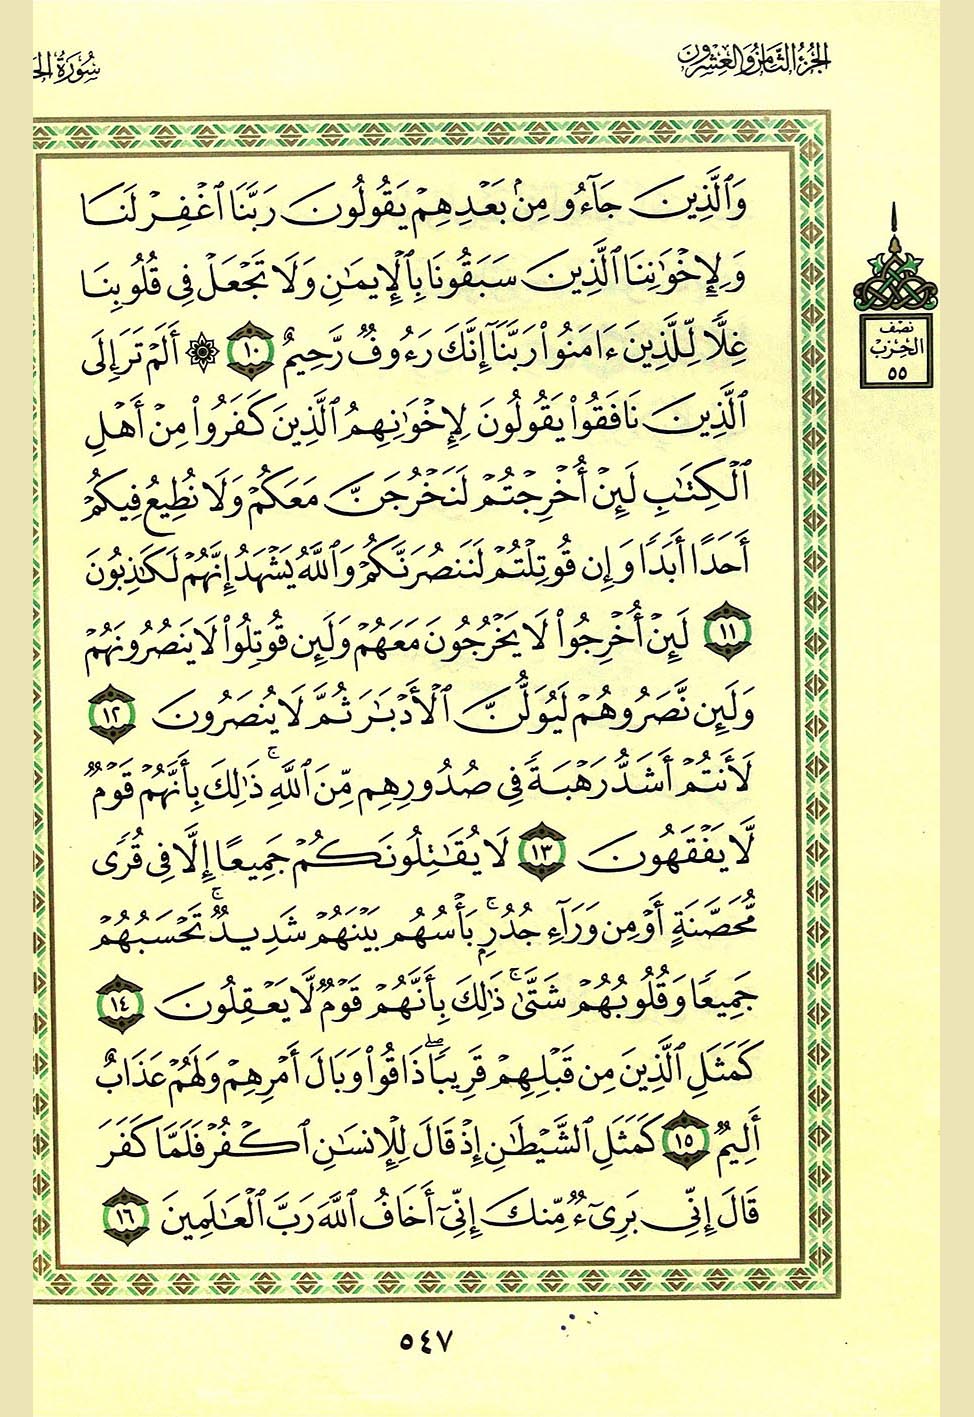 الجزء الثامن والعشرون
سورة
وَٱلَّذِينَ جَآءُو مِنۢ بَعْدِهِمْ يَقُولُونَ رَبَّنَا ٱغْفِرْ لَنَا
وَلِإِخْوَٰنِنَا ٱلَّذِينَ سَبَقُونَا بِٱلْإِيمَٰنِ وَلَا تَجْعَلْ فِى قُلُوبِنَا
غِلًّا لِّلَّذِينَ ءَامَنُوا۟ رَبَّنَآ إِنَّكَ رَءُوفٌ رَّحِيمٌ ١٠ ۞ أَلَمْ تَرَ إِلَى
ٱلَّذِينَ نَافَقُوا۟ يَقُولُونَ لِإِخْوَٰنِهِمُ ٱلَّذِينَ كَفَرُوا۟ مِنْ أَهْلِ
ٱلْكِتَٰبِ لَئِنْ أُخْرِجْتُمْ لَنَخْرُجَنَّ مَعَكُمْ وَلَا نُطِيعُ فِيكُمْ
أَحَدًا أَبَدًا وَإِن قُوتِلْتُمْ لَنَنصُرَنَّكُمْ وَٱللَّهُ يَشْهَدُ إِنَّهُمْ لَكَٰذِبُونَ
١١ لَئِنْ أُخْرِجُوا۟ لَا يَخْرُجُونَ مَعَهُمْ وَلَئِن قُوتِلُوا۟ لَا يَنصُرُونَهُمْ
وَلَئِن نَّصَرُوهُمْ لَيُوَلُّنَّ ٱلْأَدْبَٰرَ ثُمَّ لَا يُنصَرُونَ ١٢
لَأَنتُمْ أَشَدُّ رَهْبَةً فِى صُدُورِهِم مِّنَ ٱللَّهِ ۚ ذَٰلِكَ بِأَنَّهُمْ قَوْمٌ
لَّا يَفْقَهُونَ ١٣ لَا يُقَٰتِلُونَكُمْ جَمِيعًا إِلَّا فِى قُرًى
مُّحَصَّنَةٍ أَوْ مِن وَرَآءِ جُدُرٍۭ ۚ بَأْسُهُم بَيْنَهُمْ شَدِيدٌ ۚ تَحْسَبُهُمْ
جَمِيعًا وَقُلُوبُهُمْ شَتَّىٰ ۚ ذَٰلِكَ بِأَنَّهُمْ قَوْمٌ لَّا يَعْقِلُونَ ١٤
كَمَثَلِ ٱلَّذِينَ مِن قَبْلِهِمْ قَرِيبًا ۖ ذَاقُوا۟ وَبَالَ أَمْرِهِمْ وَلَهُمْ عَذَابٌ
أَلِيمٌ ١٥ كَمَثَلِ ٱلشَّيْطَٰنِ إِذْ قَالَ لِلْإِنسَٰنِ ٱكْفُرْ فَلَمَّا كَفَرَ
قَالَ إِنِّى بَرِىٓءٌ مِّنكَ إِنِّىٓ أَخَافُ ٱللَّهَ رَبَّ ٱلْعَٰلَمِينَ ١٦
نصف
الحزب
٥٥
٥٤٧